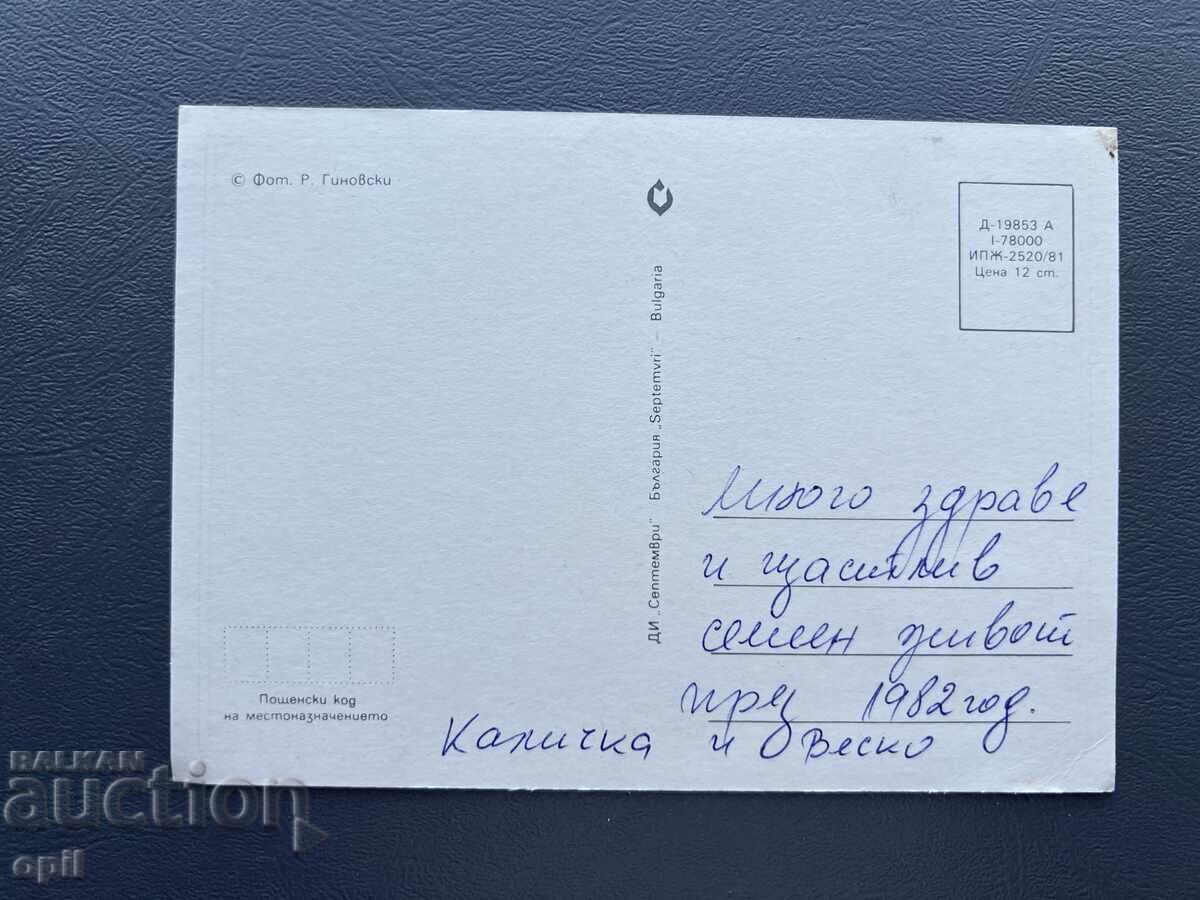 © Фот. Р. Гиновски
ДИ „Септември" България „Septemvri" – Bulgaria
Д-19853 А
I-78000
ИПЖ-2520/81
Цена 12 ст.
Много здраве
и щастлив
семен живот
през 1982 год.
Каличка и Веско
Пощенски код
на местоназначението
BALKAN
auction
opil